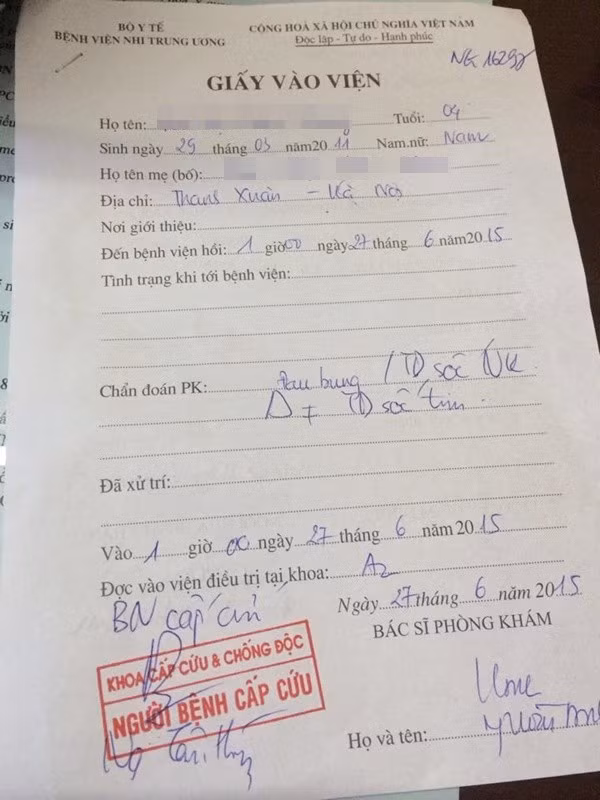 BỘ Y TẾ
BỆNH VIỆN NHI TRUNG ƯƠNG
CỘNG HOÀ XÃ HỘI CHỦ NGHĨA VIỆT NAM
Độc lập - Tự do - Hạnh phúc
GIẤY VÀO VIỆN
Họ tên:
Tuổi: 04
Sinh ngày 29 tháng 03 năm 2011 Nam.nữ: Nam
Họ tên mẹ (bố):
Địa chỉ: Thanh Xuân - Hà Nội
Nơi giới thiệu:
Đến bệnh viện hồi: 1 giờ 00 ngày 27 tháng 6 năm 2015
Tình trạng khi tới bệnh viện:
Chẩn đoán PK: Đau bụng / TD sốc NK
TD sốc tim
Đã xử trí:
Vào 1 giờ 00 ngày 27 tháng 6 năm 2015
Đợc vào viện điều trị tại khoa: A2
BN cấp cứu
Ngày 27 tháng 6 năm 2015
BÁC SĨ PHÒNG KHÁM
KHOA CẤP CỨU & CHỐNG ĐỘC
NGƯỜI BỆNH CẤP CỨU
Họ và tên: